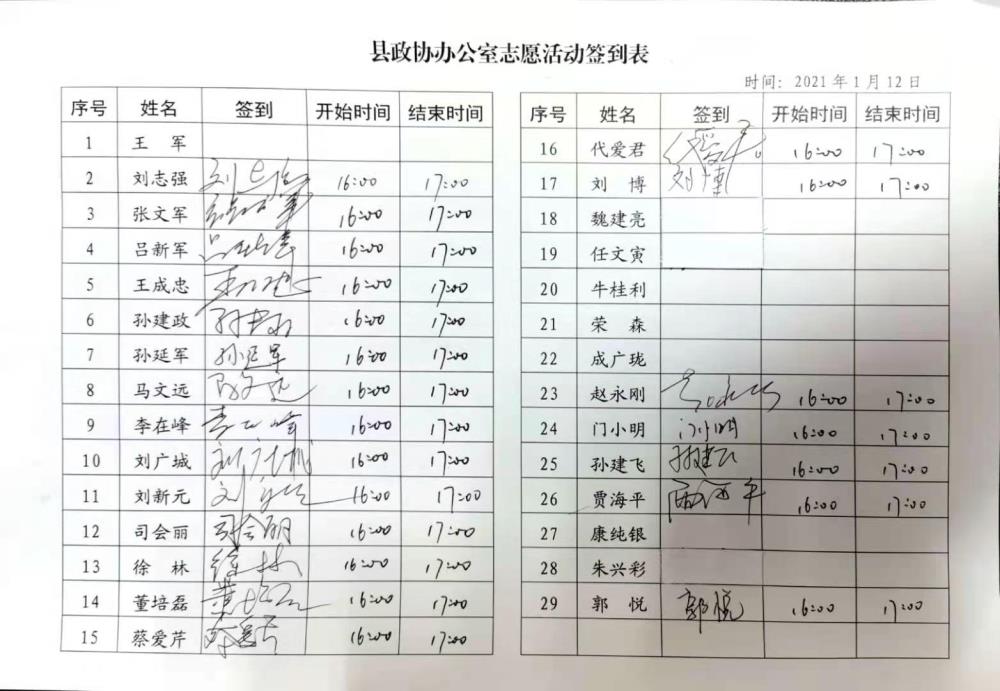 县政协办公室志愿活动签到表
时间：2021年1月12日
序号 姓名 签到 开始时间 结束时间
1 王 军
2 刘志强 16:00 17:00
3 张文军 16:00 17:00
4 吕新军 16:00 17:00
5 王成忠 16:00 17:00
6 孙建政 16:00 17:00
7 孙延军 孙延军 16:00 17:00
8 马文远 马文远 16:00 17:00
9 李在峰 李在峰 16:00 17:00
10 刘广城 16:00 17:00
11 刘新元 16:00 17:00
12 司会丽 司会丽 16:00 17:00
13 徐 林 徐林 16:00 17:00
14 董培磊 董培磊 16:00 17:00
15 蔡爱芹 16:00 17:00
序号 姓名 签到 开始时间 结束时间
16 代爱君 代爱君 16:00 17:00
17 刘 博 刘博 16:00 17:00
18 魏建亮
19 任文寅
20 牛桂利
21 荣 森
22 成广珑
23 赵永刚 16:00 17:00
24 门小明 门小明 16:00 17:00
25 孙建飞 孙建飞 16:00 17:00
26 贾海平 贾海平 16:00 17:00
27 康纯银
28 朱兴彩
29 郭 悦 郭悦 16:00 17:00